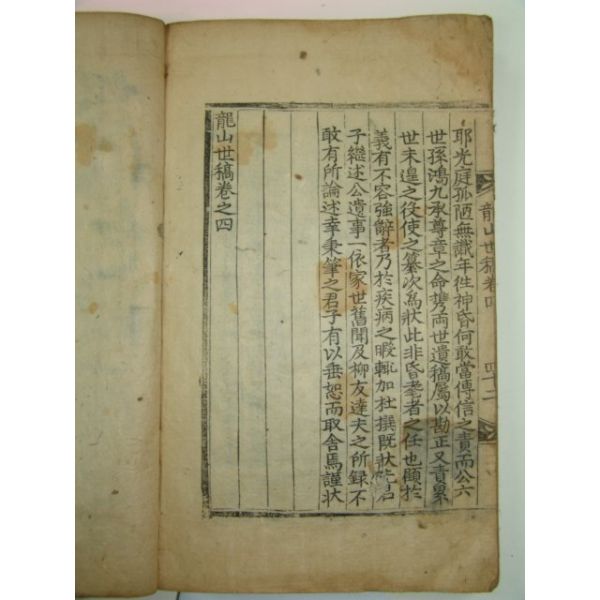 耶光庭孤陋無識年徃神昏何敢當傳信之責而公六
世孫鴻九承尊章之命携兩世遺稿屬以勘正又責累
世未遑之役使之纂次爲狀此非昏耄者之任也顧於
義有不容強辭者乃於疾病之暇輒加杜撰旣狀先君
子繼述公遺事一依家世舊聞及柳友達夫之所錄不
敢有所論述幸秉筆之君子有以垂恕而取舍焉謹狀
龍山世稿卷之四
龍山世稿卷四
四十二